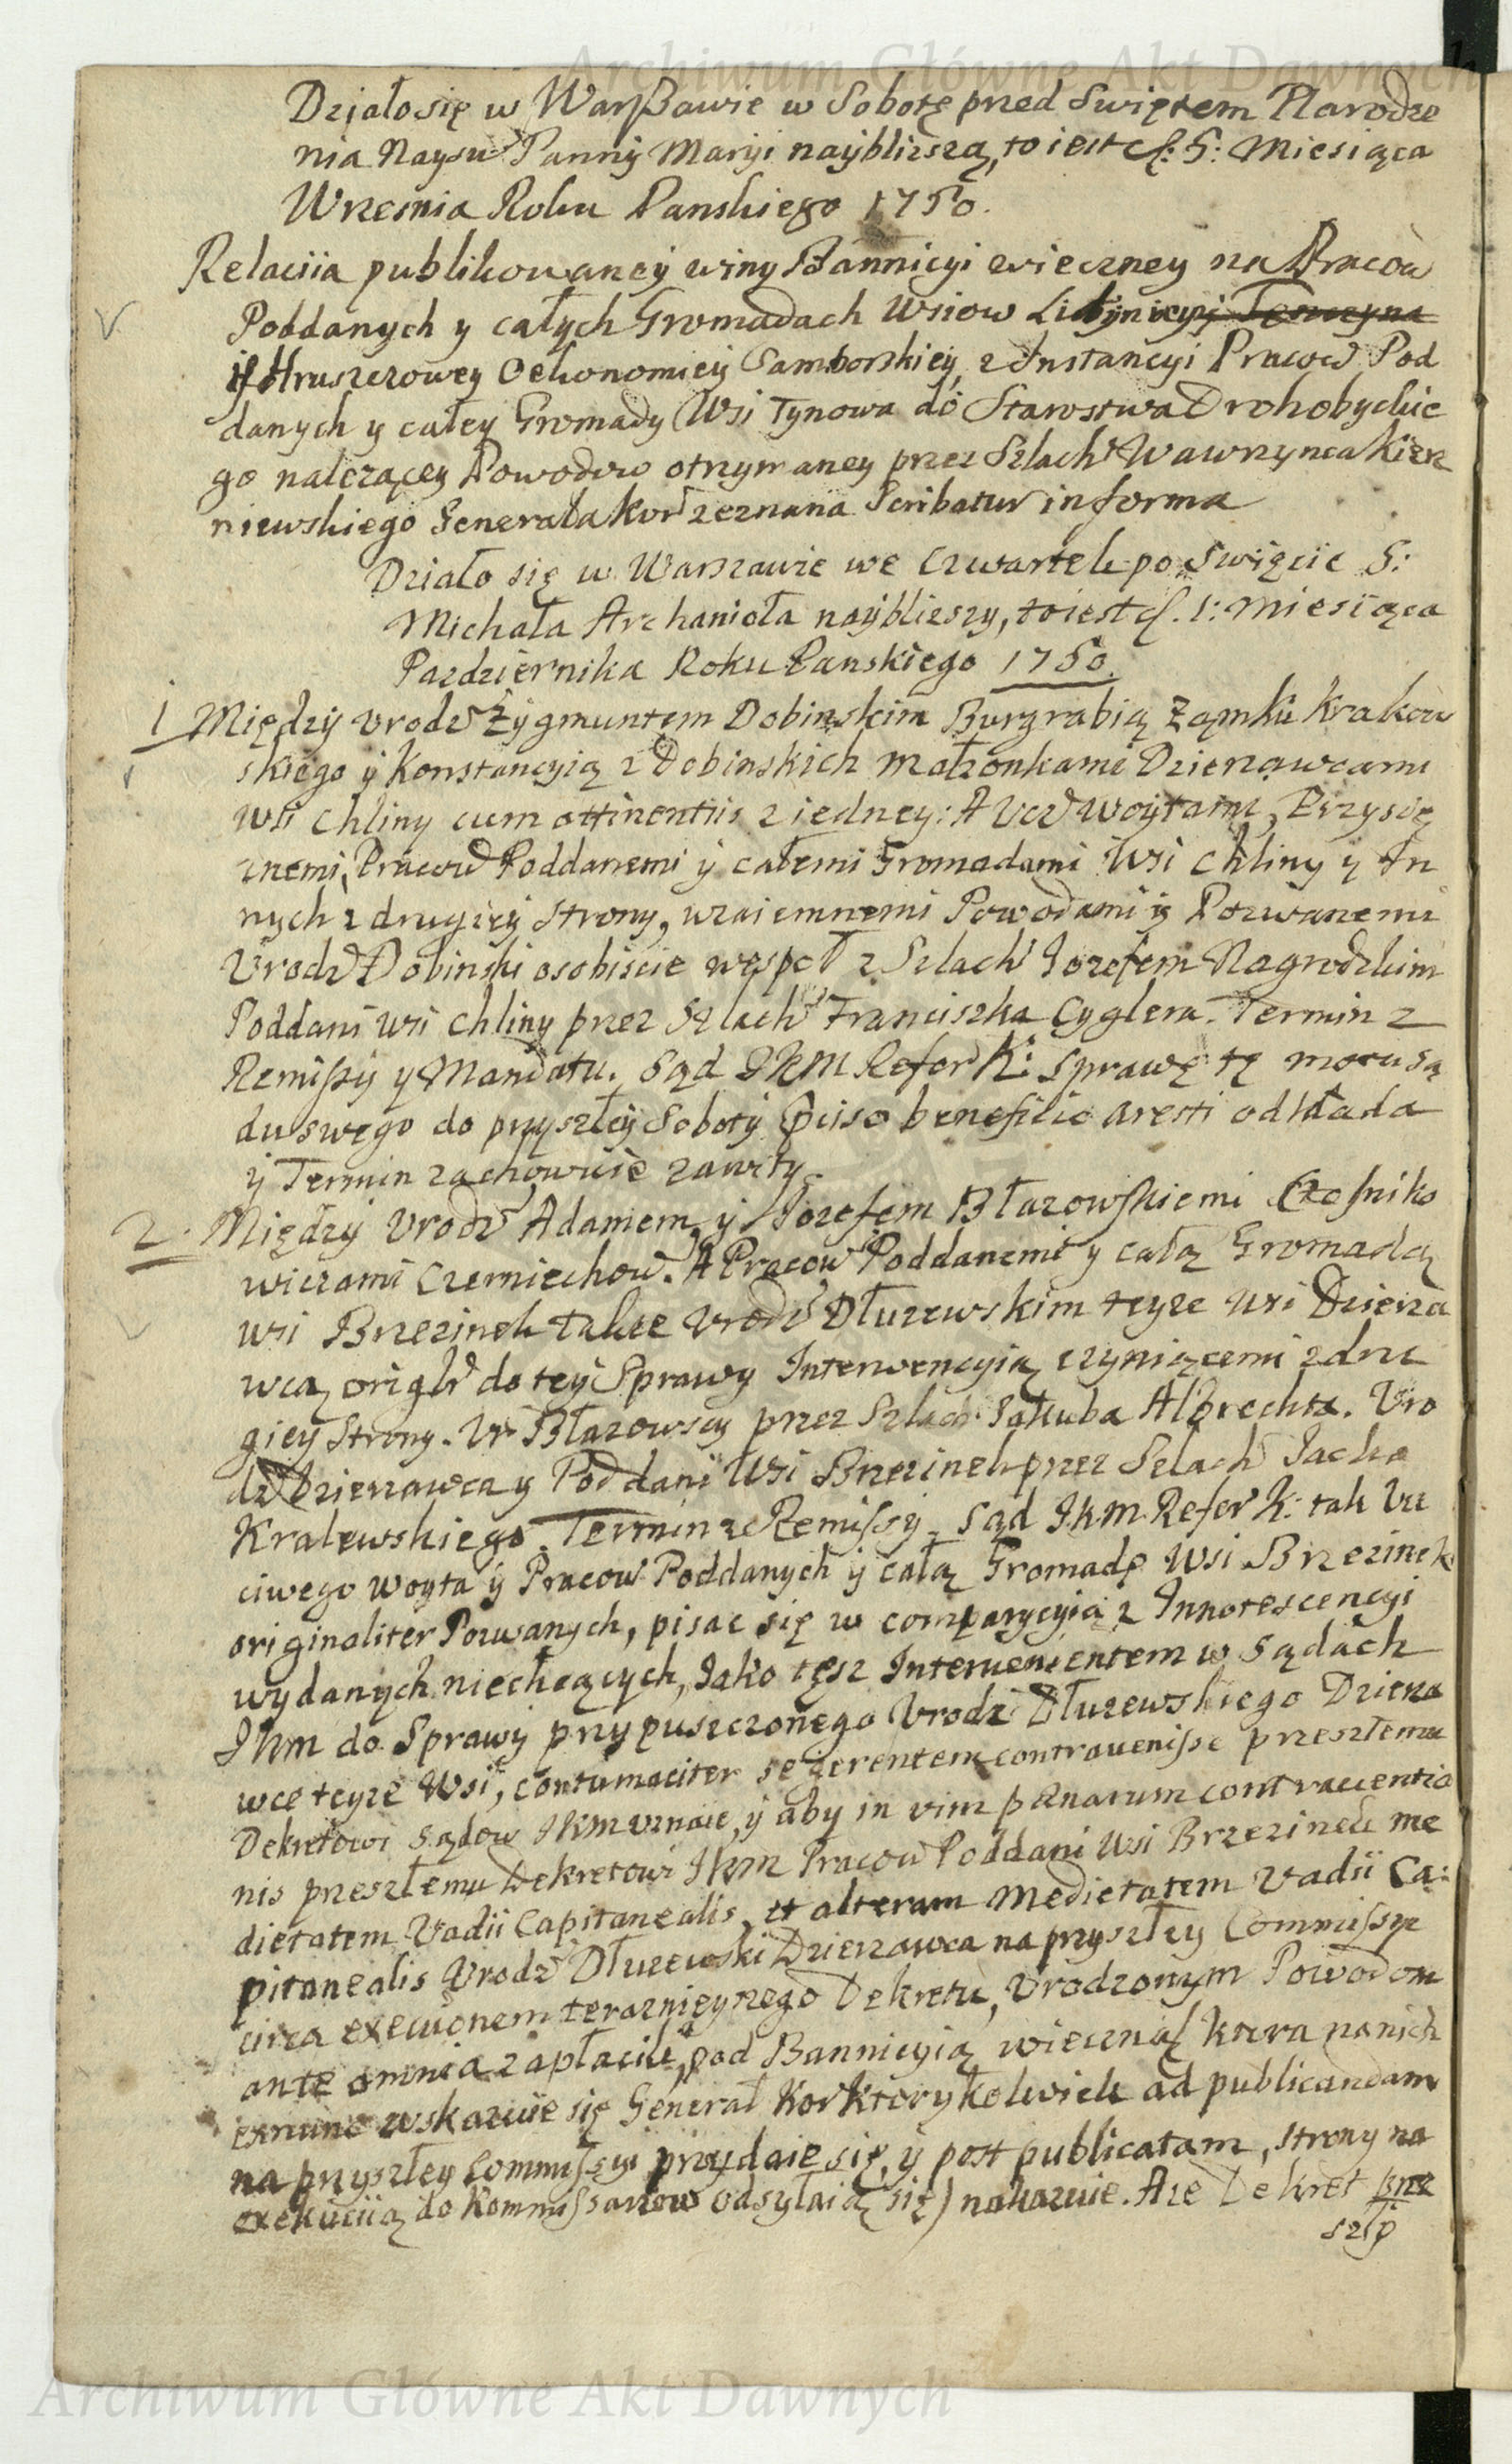 Działo się w Warszawie w Sobotę przed Swiętem Narodze
nia Nayśw Panny Maryi naybliższą, to iest d: 5: Miesiąca
Wrzesnia Roku Panskiego 1750.
Relacyia publikowaney winy Bannicyi wieczney na Pracow
Poddanych y całych Gromadach Wsiow
y Hruszzowey Oekonomiey Samborskiey, z Instancyi Pracow Pod
danych y całey Gromady Wsi Tynowa do Starostwa Drohobyckie
go nalezącey Powodow otrzymaney przez Szlach Wawrzynca Kierz
niewskiego Generała Kor zeznana Scribatur in forma
Działo się w Warszawie we Czwartek po Swięcie S:
Michała Archanioła naybliższy, to iest d. 1: Miesiąca
Pazdziernika Roku Panskiego 1750.
1 Między Urodz Zygmuntem Dobinskim Burgrabią Zamku Krakow
skiego y Konstancyią z Dobinskich małżonkami Dzierzawcami
wsi Chliny cum attinentiis z iedney: A Ucz Woytami, Przysię
znemi, Pracow Poddanemi y całemi Gromadami Wsi Chliny y In
nych z drugiey strony, wzaiemnemi Powodami y Pozwanemi
Urodz Dobinski osobiscie wespoł z Szlach Iozefem Nagrodzkim
Poddani wsi Chliny przez Szlach Franciszka Cyglera. Termin z
Remissy y Mandatu. Sąd JKM Refer K: sprawę tę mocą są
du swego do przyszłey Soboty sciso beneficio aresti odkłada
y Termin zachowuie zawity.
2. Między Urodz Adamem y Iozefem Błazowskiemi Czesniko
wiczami Czerniechow. A Pracow Poddanemi y całą Gromadą
wsi Brzezinek także Urodz Dłuzewskim teyze wsi Dzierza
wcą origlr do tey Sprawy Interwencyią czyniącemi z dru
giey strony. Ur Błazowscy przez Szlach Iakuba Albrechta. Uro
dz Dzierzawca y Poddani Wsi Brzezinek przez Szlach Iacka
Kralewskiego. Termin z Remissy. Sąd JKM Refer K: tak Ucz
ciwego Woyta y Pracow Poddanych y całą Gromadę Wsi Brzezinek
originaliter Pozwanych, pisac się w comparycyią z Innotescencyi
wydanych niechcących, Iako tesz Intervenientem w Sądach
JKM do Sprawy przypuszczonego Urodz Dłuzewskiego Dzierza
wce teyze Wsi, contumaciter se gerentem contravenisse przeszłemu
Dekretowi Sądow JKM uznaie, y aby in vim pænarum contraventio
nis przeszłemu Dekretowi JKM Pracow Poddani Wsi Brzezinek me
dietatem Vadii Capitanealis, et alteram Medietatem Vadii Ca:
pitanealis Urodz Dłuzewski Dzierzawca na przyszłey Commissyi
circa executionem terazniejszego Dekretu, Urodzonym Powodom
ante omnia zapłacili, pod Bannicyią wieczną (ktora na nich
exnunc wskazuie się Generał Kor ktorykolwiek ad publicandam
na przyszłey Commissyi przydaie się, y post publicatam, strony na
exekucyią do Kommissarzow odsyłaią się) nakazuie. Aze Dekret prze
szłÿ